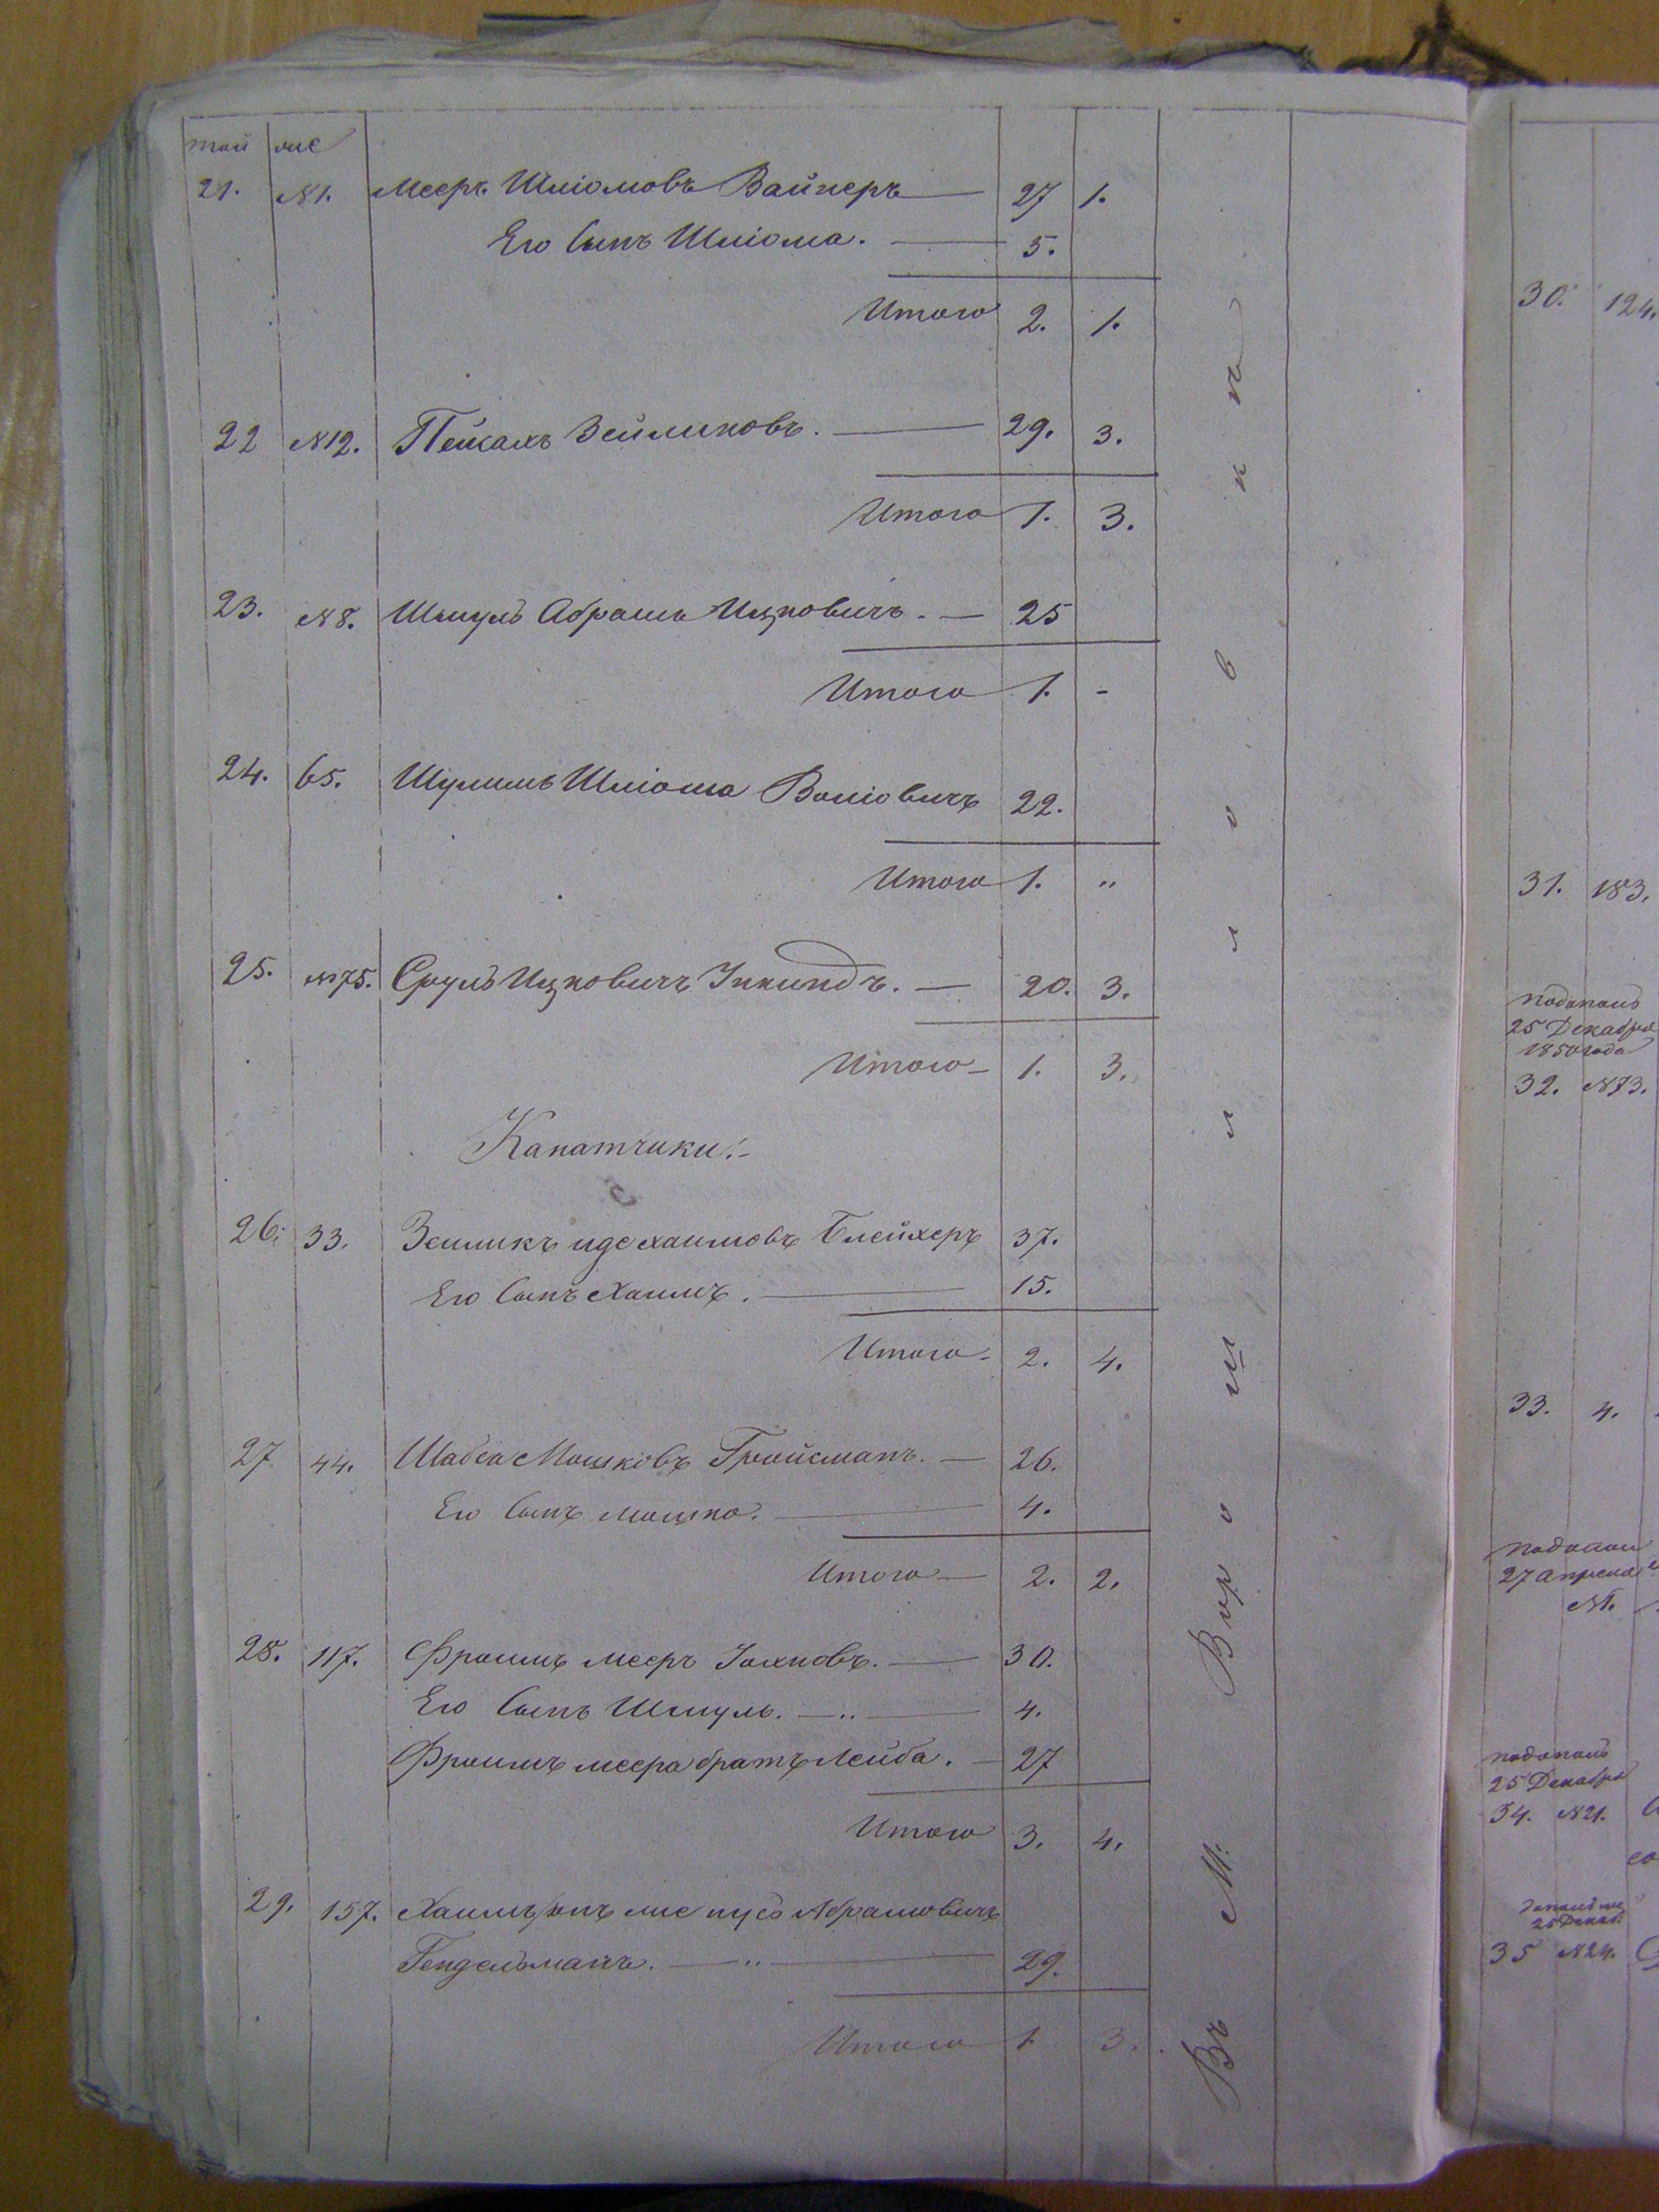 той же
21. №1. Мееръ Шліомовъ Вайнеръ — 27 1.
Его Сынъ Шліома. — 5.
Итого 2. 1.
22 №12. Пейсахъ Зейликовъ. — 29. 3.
Итого 1. 3.
23. №8. Шмуль Абрамъ Ицковичъ. — 25
Итого 1. -
24. 65. Шулимъ Шліома Воліовичъ 22.
Итого 1. „
25. №75. Сруль Ицковичъ — 20. 3.
Итого — 1. 3.
Канатчики:-
26. 33. Зеиликъ иде хаимовъ Блейхеръ 37.
Его Сынъ Хаимъ. — 15.
Итого - 2. 4.
27 44. Шабса Мошковъ Гройсманъ. — 26.
Его Сынъ мошко. — 4.
Итого — 2. 2.
28. 117. Фроимъ мееръ — 30.
Его Сынъ Шмуль. — „ — 4.
Фроимъ меера братъ Лейба. — 27
Итого 3. 4.
29. 157. Хаимъ Абрамовичъ
Гендельманъ. — „ — 29.
Итого 1 3.
Въ М.
30. 124.
31. 183.
25 Декабря
1850 года
32. №73.
33. 4.
27 апреля
№1.
25 Декабря
34. №21.
25 Декаб.
35 №24.